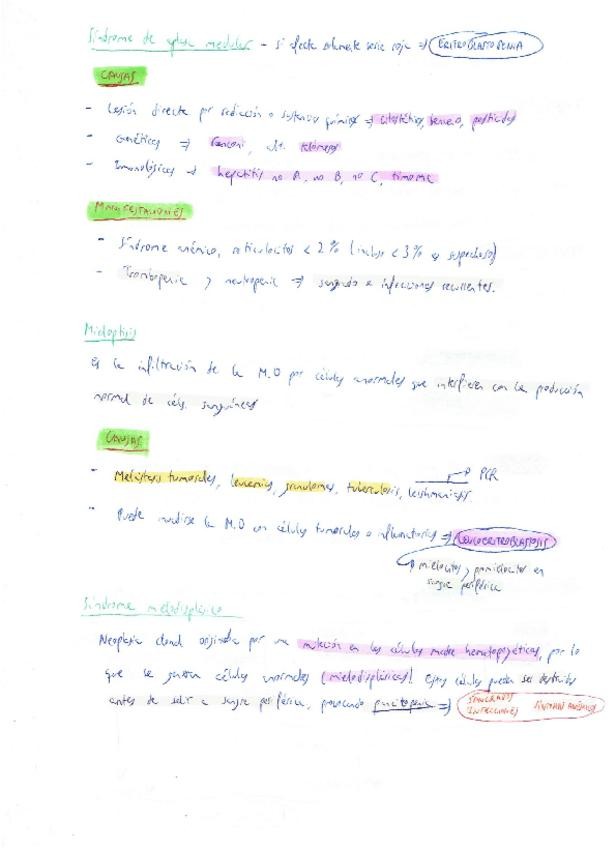 Síndrome de aplasia medular - si afecta solamente serie roja => ERITROBLASTOPENIA
CAUSAS
- Lesión directa por radiación o sustancias químicas => citostáticos, benceno, pesticidas
- Genéticas => Fanconi, alt. telómeros
- Inmunológicas -> hepatitis no A, no B, no C, timoma
MANIFESTACIONES
- Síndrome anémico, reticulocitos < 2% (incluso < 3% es sospechoso)
- Trombopenia y neutropenia => sangrado e infecciones recurrentes.
Mieloptisis
Es la infiltración de la M.O por células anormales que interfieren con la producción
normal de céls. sanguíneas
CAUSAS
- Metástasis tumorales, leucemias, granulomas, tuberculosis, leishmaniasis. PCR
- Puede invadirse la M.O con células tumorales o inflamatorias => LEUCOERITROBLASTOSIS
mielocitos y promielocitos en
sangre periférica
Síndrome mielodisplásico
Neoplasia clonal originada por una mutación en las células madre hematopoyéticas, por lo
que se generan células anormales (mielodisplásicas). Estas células pueden ser destruidas
antes de salir a sangre periférica, provocando pancitopenia =>
SANGRADOS
INFECCIONES SÍNTOMAS ANÉMICOS